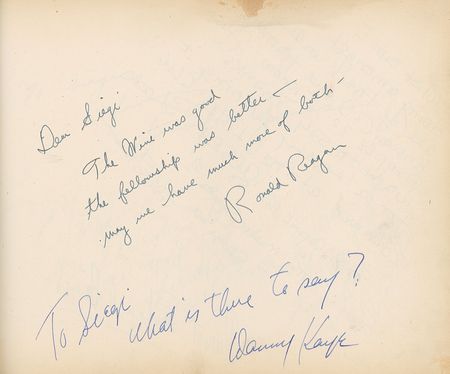 Dear Siegi
The Wine was good
the fellowship was better –
may we have much more of both –
Ronald Reagan
To Siegi
What is there to say?
Danny Kaye